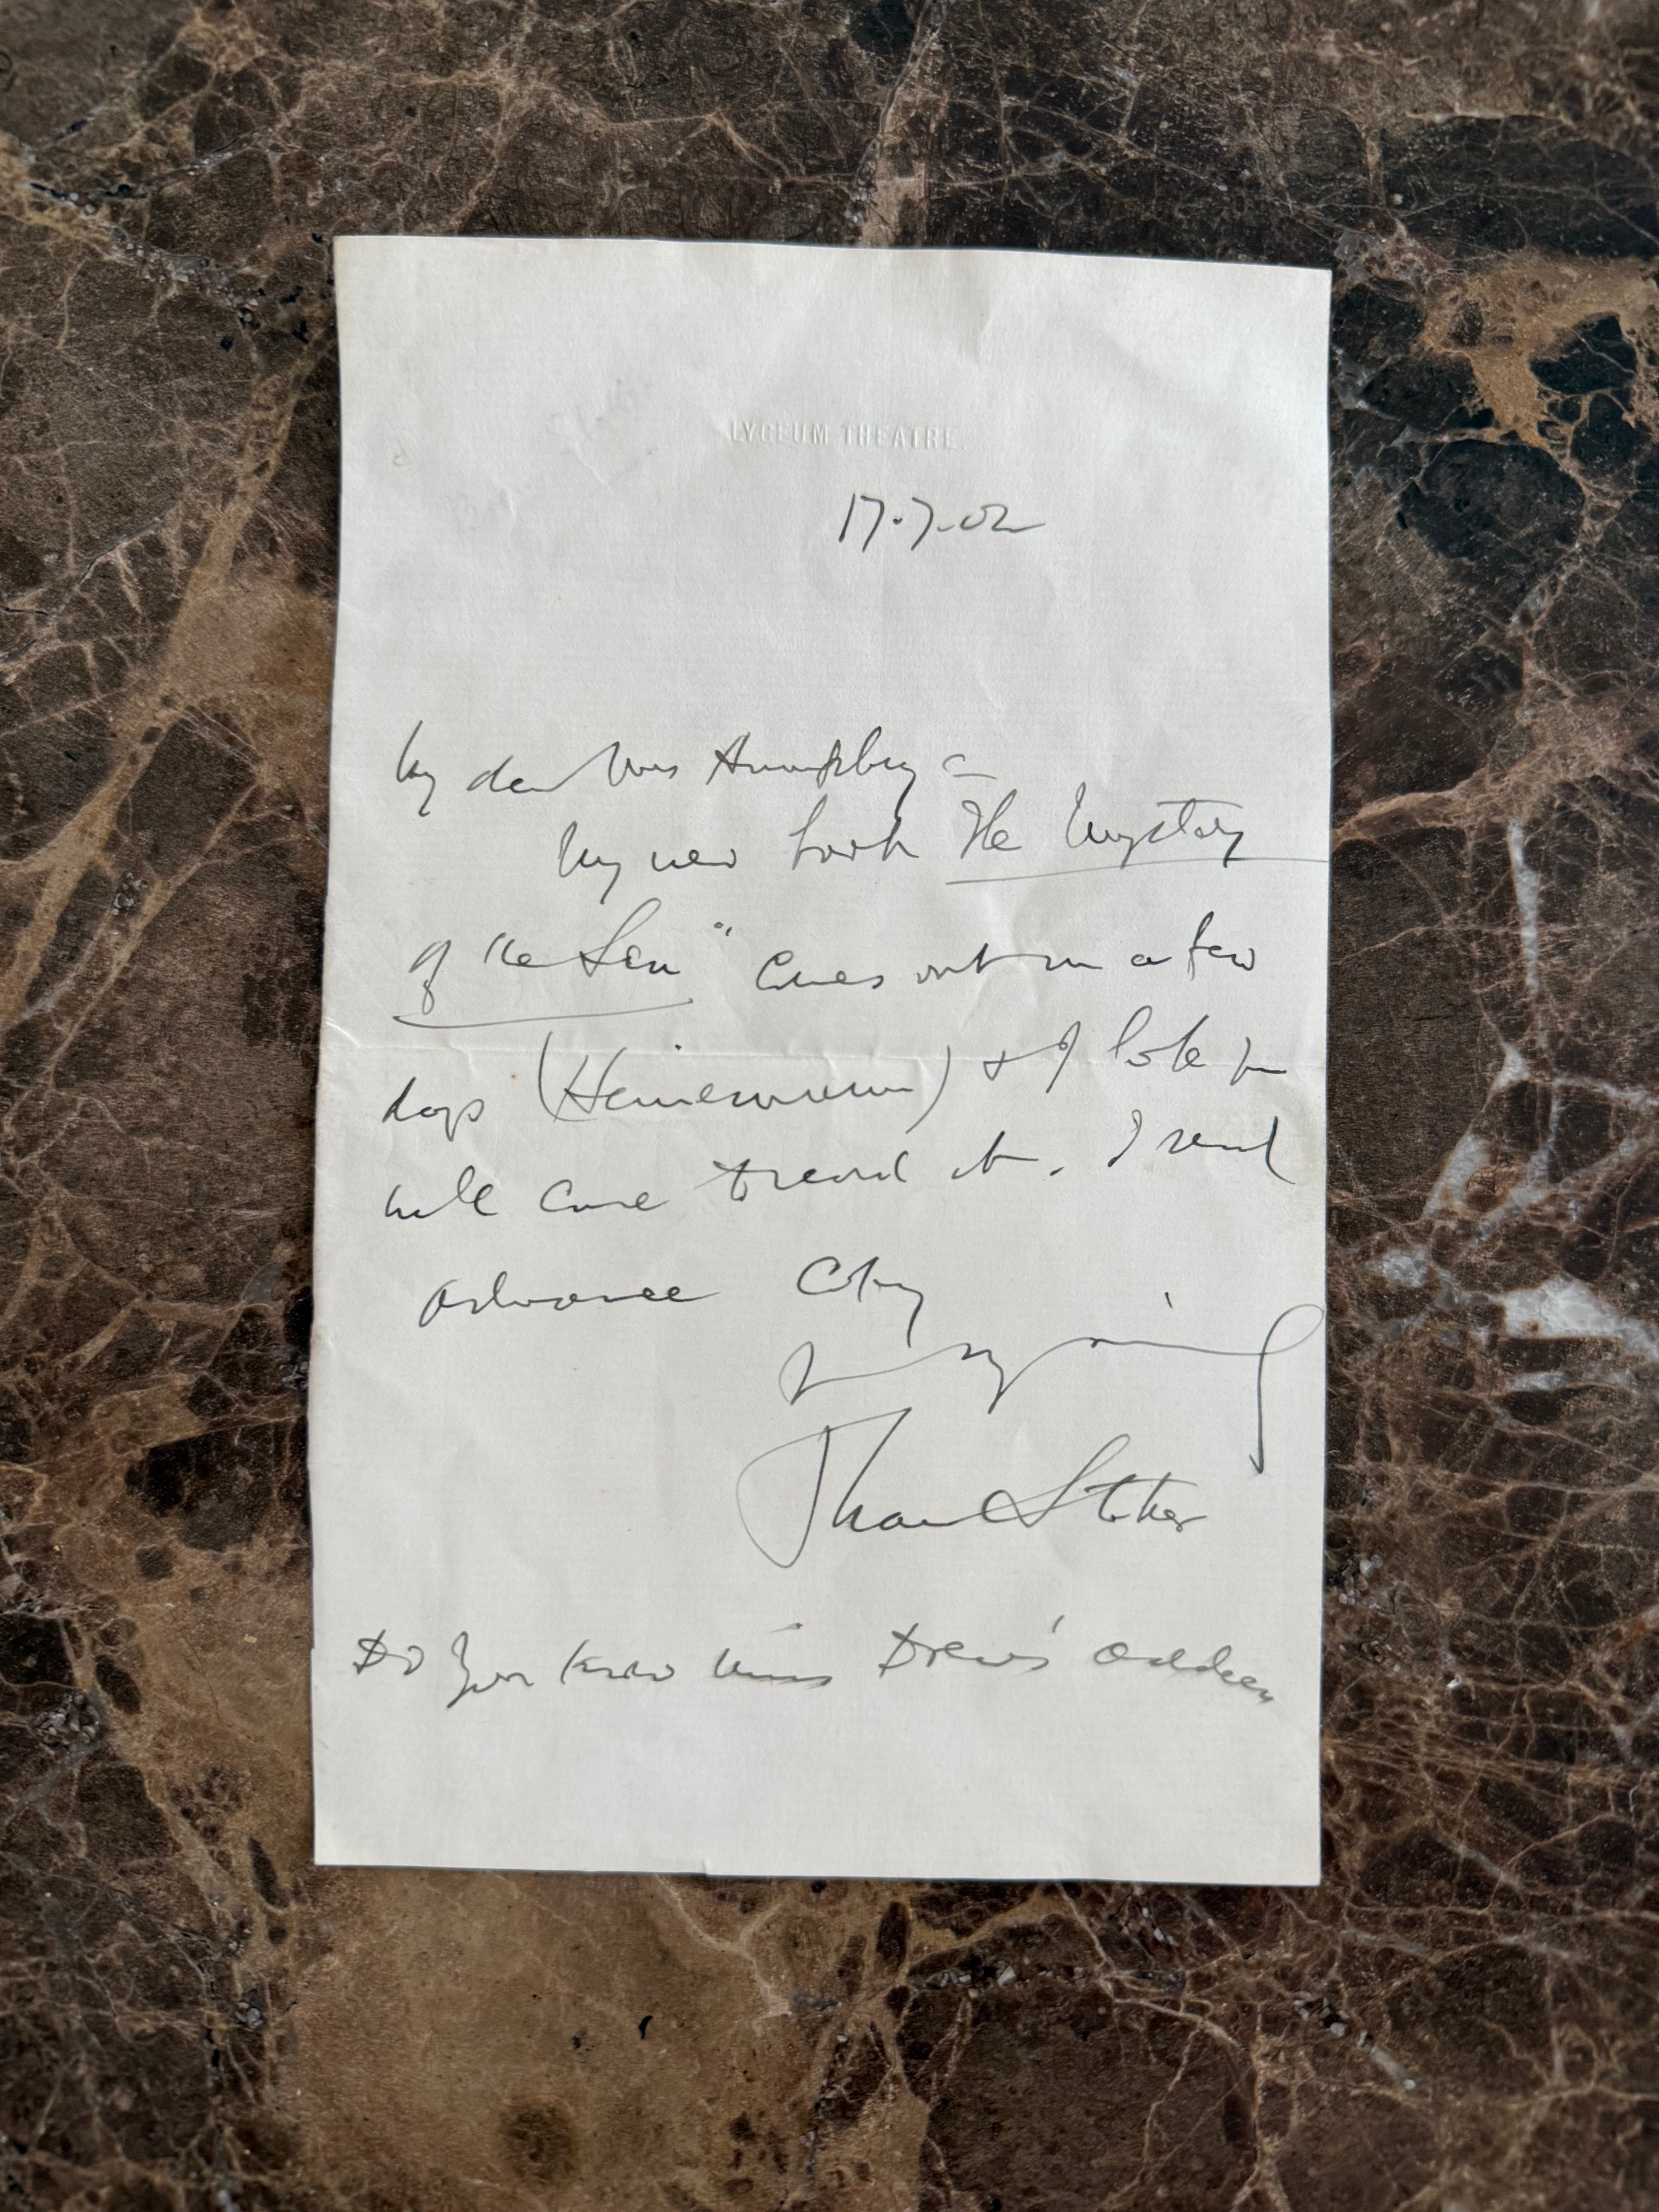 LYCEUM THEATRE.
17.7.02
My dear Mrs Humphry
My new book The Mystery
of the Sea" comes out in a few
days (Heinemann) & I hope you
will care to read it. I send
advance copy
Bram Stoker
Do you know Miss Drew's address